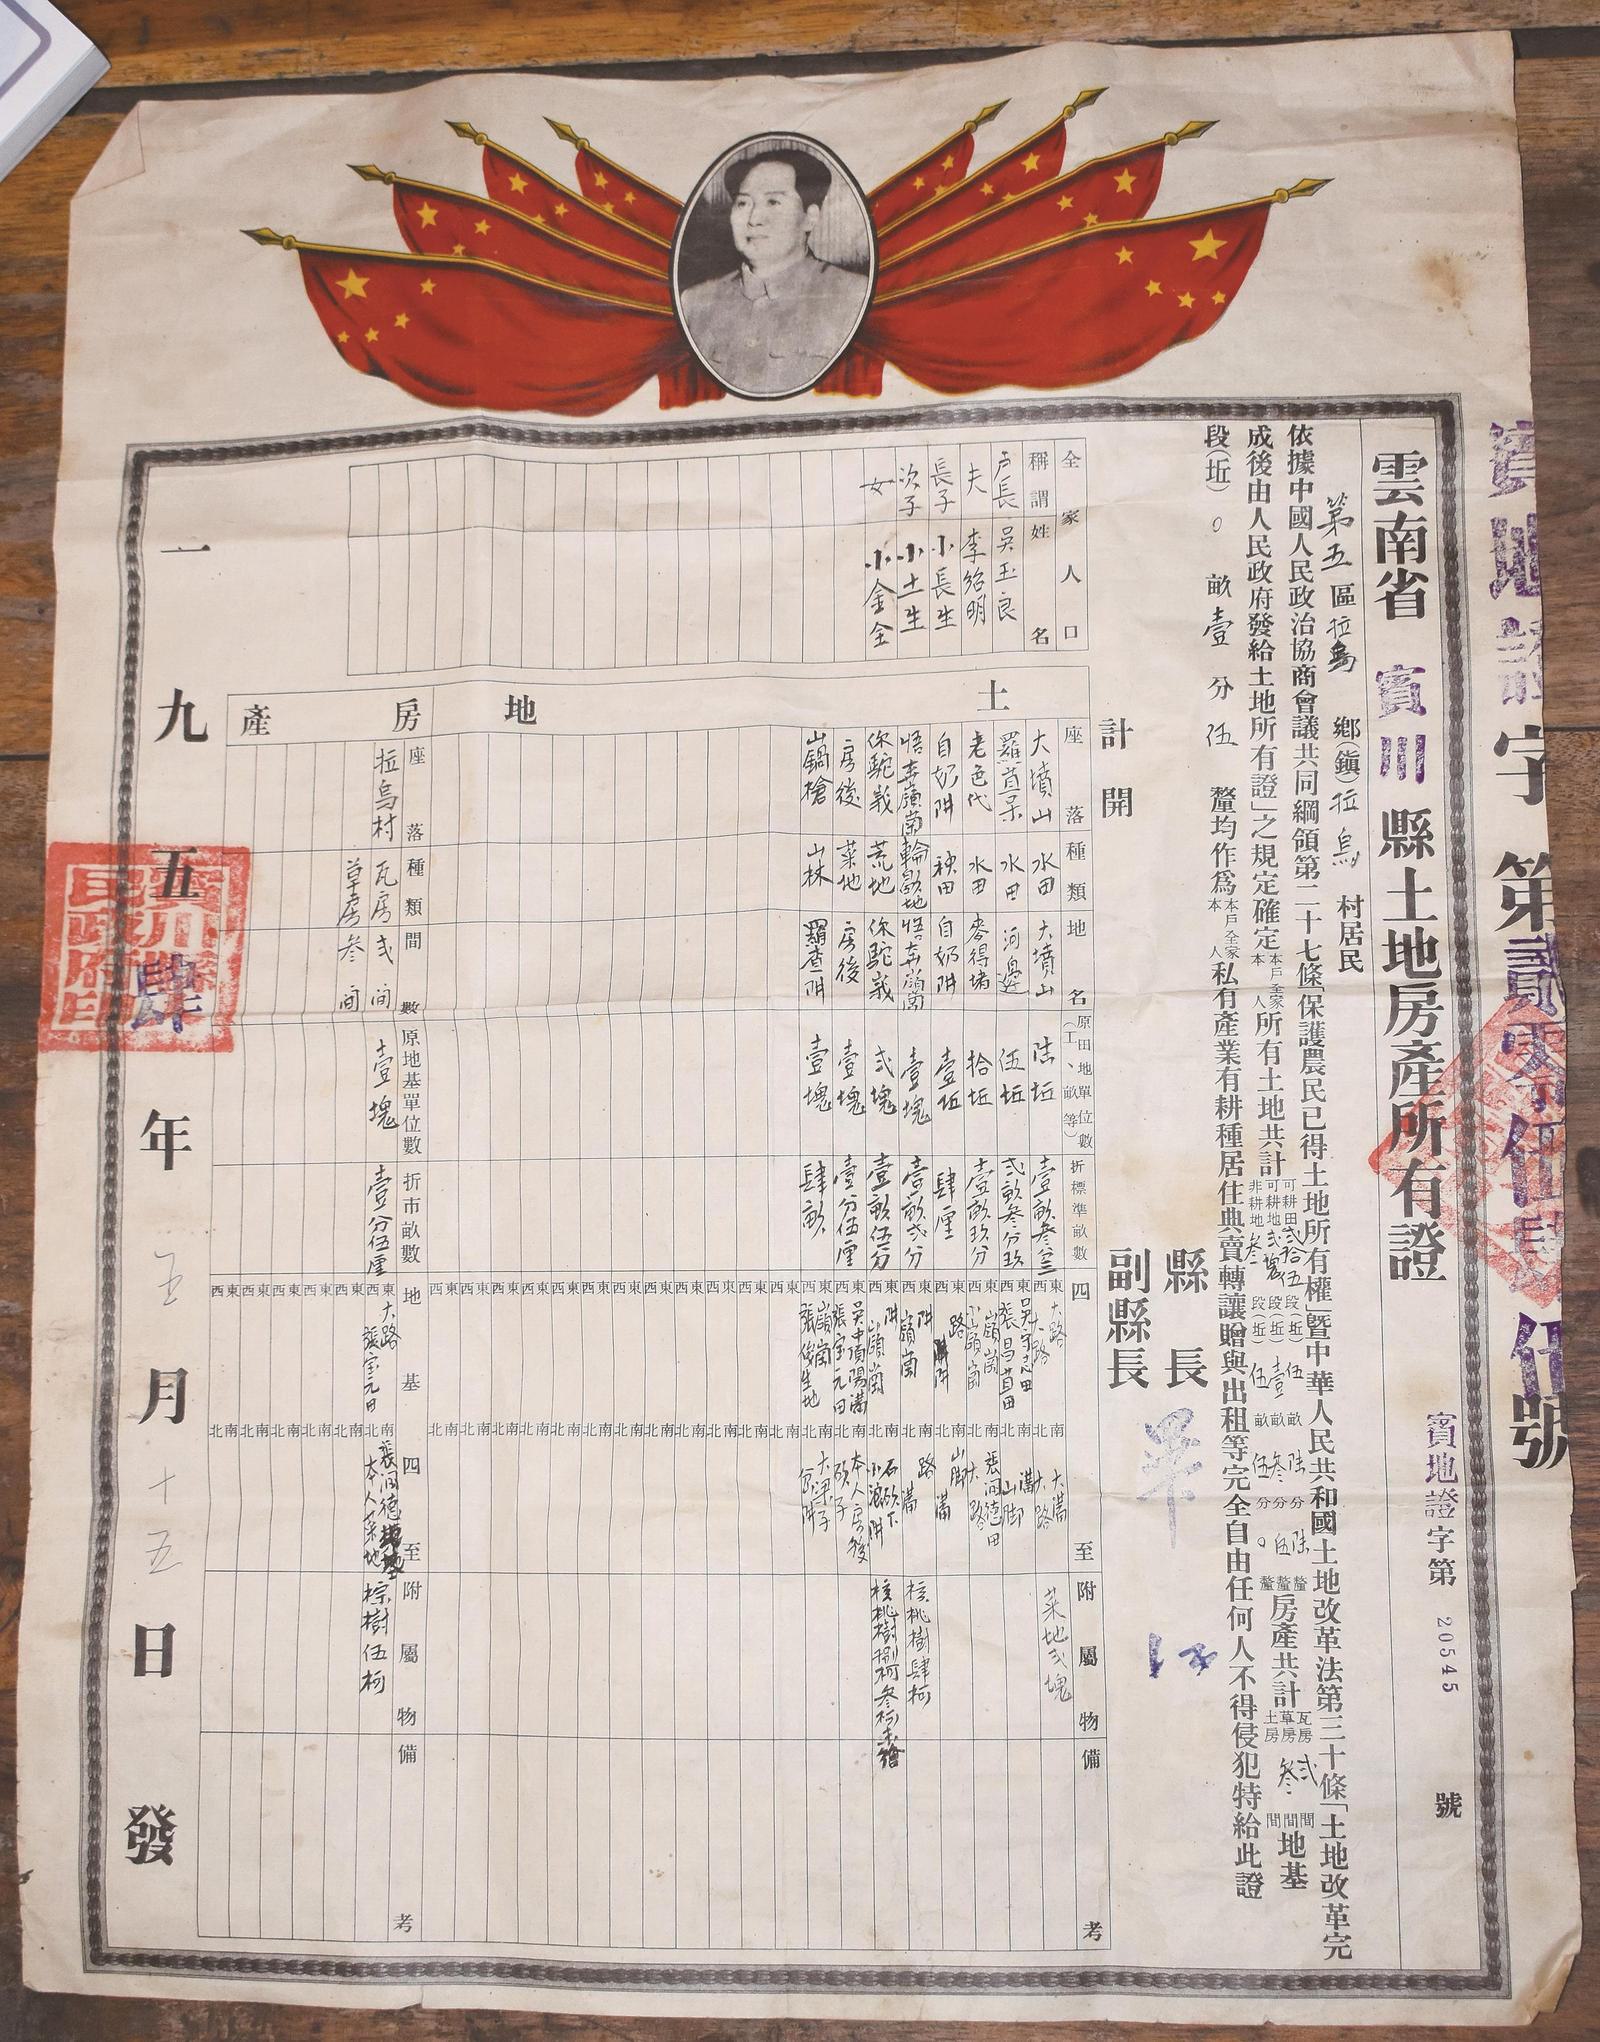 賓地證字第貳零伍肆伍號
賓地證字第 20545 號
雲南省賓川縣土地房產所有證
第五區拉烏鄉(鎮)拉烏村居民
依據中國人民政治協商會議共同綱領第二十七條「保護農民已得土地所有權」暨中華人民共和國土地改革法第三十條「土地改革完
成後由人民政府發給土地所有證」之規定確定本戶全家本人所有土地共計可耕田貳拾伍段(坵)伍畝陸分陸釐可耕地弍塊段(坵)壹畝叁分伍釐非耕地叁段(坵)伍畝伍分〇釐房產共計瓦房弍間草房叁間土房間地基
段(坵)〇畝壹分伍釐均作為本戶全家本人私有產業有耕種居住典賣轉讓贈與出租等完全自由任何人不得侵犯特給此證
縣長
副縣長
計開
全家人口
稱謂 姓名
戶長 吳玉良
夫 李紹明
長子 小長生
次子 小土生
女 小金全
土地
座落 種類 地名 原田地單位數(工、畝等) 折標準畝數 四至 附屬物 備考
大墳山 水田 大墳山 陸坵 壹畝叁分 東大路 西大路 南大溝 北大路 菜地弍塊
水田 河邊 伍坵 弍畝叁分玖 東吳守志田 西張昌苜田 南溝 北山脚
老色代 水田 拾坵 壹畝玖分 東嶺崗 南張润德田 北大路
自奶阱 秧田 自奶阱 壹坵 肆厘 東路 南山脚 北溝
輪歇地 壹塊 壹畝弍分 東阱 西嶺崗 南路 北溝 核桃樹肆柯
你駝義 荒地 你駝義 弍塊 壹畝伍分 東阱 西山嶺崗 南石砍下 北小浪阱
房後 菜地 房後 壹塊 壹分伍厘 西張宝元田 南本人房後 北砍子
山鍋槍 山林 羅查阱 壹塊 肆畝 東嶺崗 西張俊生地
房產
座落 種類 間數 原地基單位數 折市畝數 地基四至 附屬物 備考
拉烏村 瓦房弍間 壹塊 壹分伍厘 東大路 西張宝元田 南張润德 北本人菜地 棕樹伍柯
草房叁間
一九五肆年五月十五日發
賓川縣人民政府印